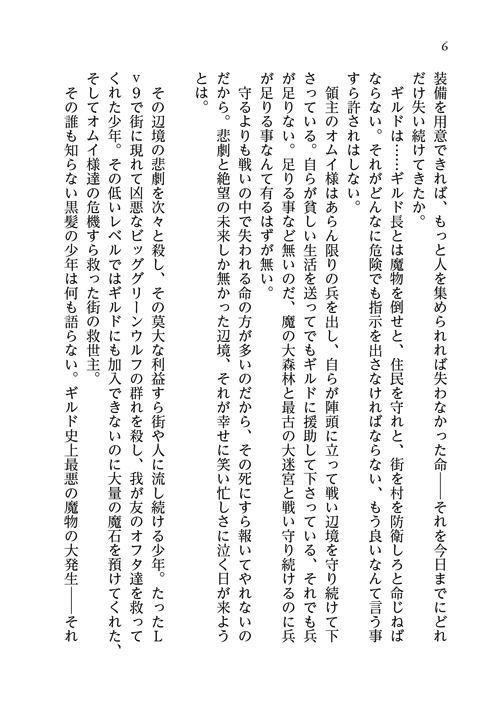 6
装備を用意できれば、もっと人を集められれば失わなかった命――それを今日までにどれ
だけ失い続けてきたか。
　ギルドは……ギルド長とは魔物を倒せと、住民を守れと、街を村を防衛しろと命じねば
ならない。それがどんなに危険でも指示を出さなければならない、もう良いなんて言う事
すら許されはしない。
　領主のオムイ様はあらん限りの兵を出し、自らが陣頭に立って戦い辺境を守り続けて下
さっている。自らが貧しい生活を送ってでもギルドに援助して下さっている、それでも兵
が足りない。足りる事など無いのだ、魔の大森林と最古の大迷宮と戦い守り続けるのに兵
が足りる事なんて有るはずが無い。
　守るよりも戦いの中で失われる命の方が多いのだから、その死にすら報いてやれないの
だから。悲劇と絶望の未来しか無かった辺境、それが幸せに笑い忙しさに泣く日が来よう
とは。
　その辺境の悲劇を次々と殺し、その莫大な利益すら街や人に流し続ける少年。たったL
v9で街に現れて凶悪なビッググリーンウルフの群れを殺し、我が友のオフタ達を救って
くれた少年。その低いレベルではギルドにも加入できないのに大量の魔石を預けてくれた、
そしてオムイ様達の危機すら救った街の救世主。
　その誰も知らない黒髪の少年は何も語らない。ギルド史上最悪の魔物の大発生――それ